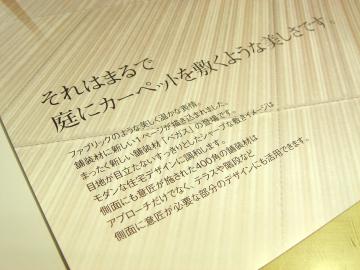 それはまるで
庭にカーペットを敷くような美しさです。
ファブリックのような美しく温かな表情。
舗装材に新しい1ページが描き込まれました。
まったく新しい舗装材「ペガス」の登場です。
目地が目立たないすっきりとしたシャープな敷きイメージは
モダンな住宅デザインに調和します。
側面にも意匠が施された400角の舗装材は
アプローチだけでなく、テラスや階段など
側面に意匠が必要な部分のデザインにも活用できます。